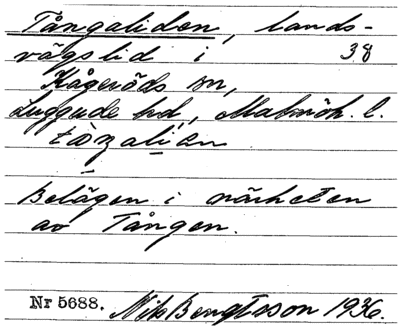 Tångaliden, lands-
vägslid i 38
Kågeröds sn,
Luggude hd, Malmöh. l.
Belägen i närheten
av Tången.
Nr 5688. Nils Bengtsson 1936.